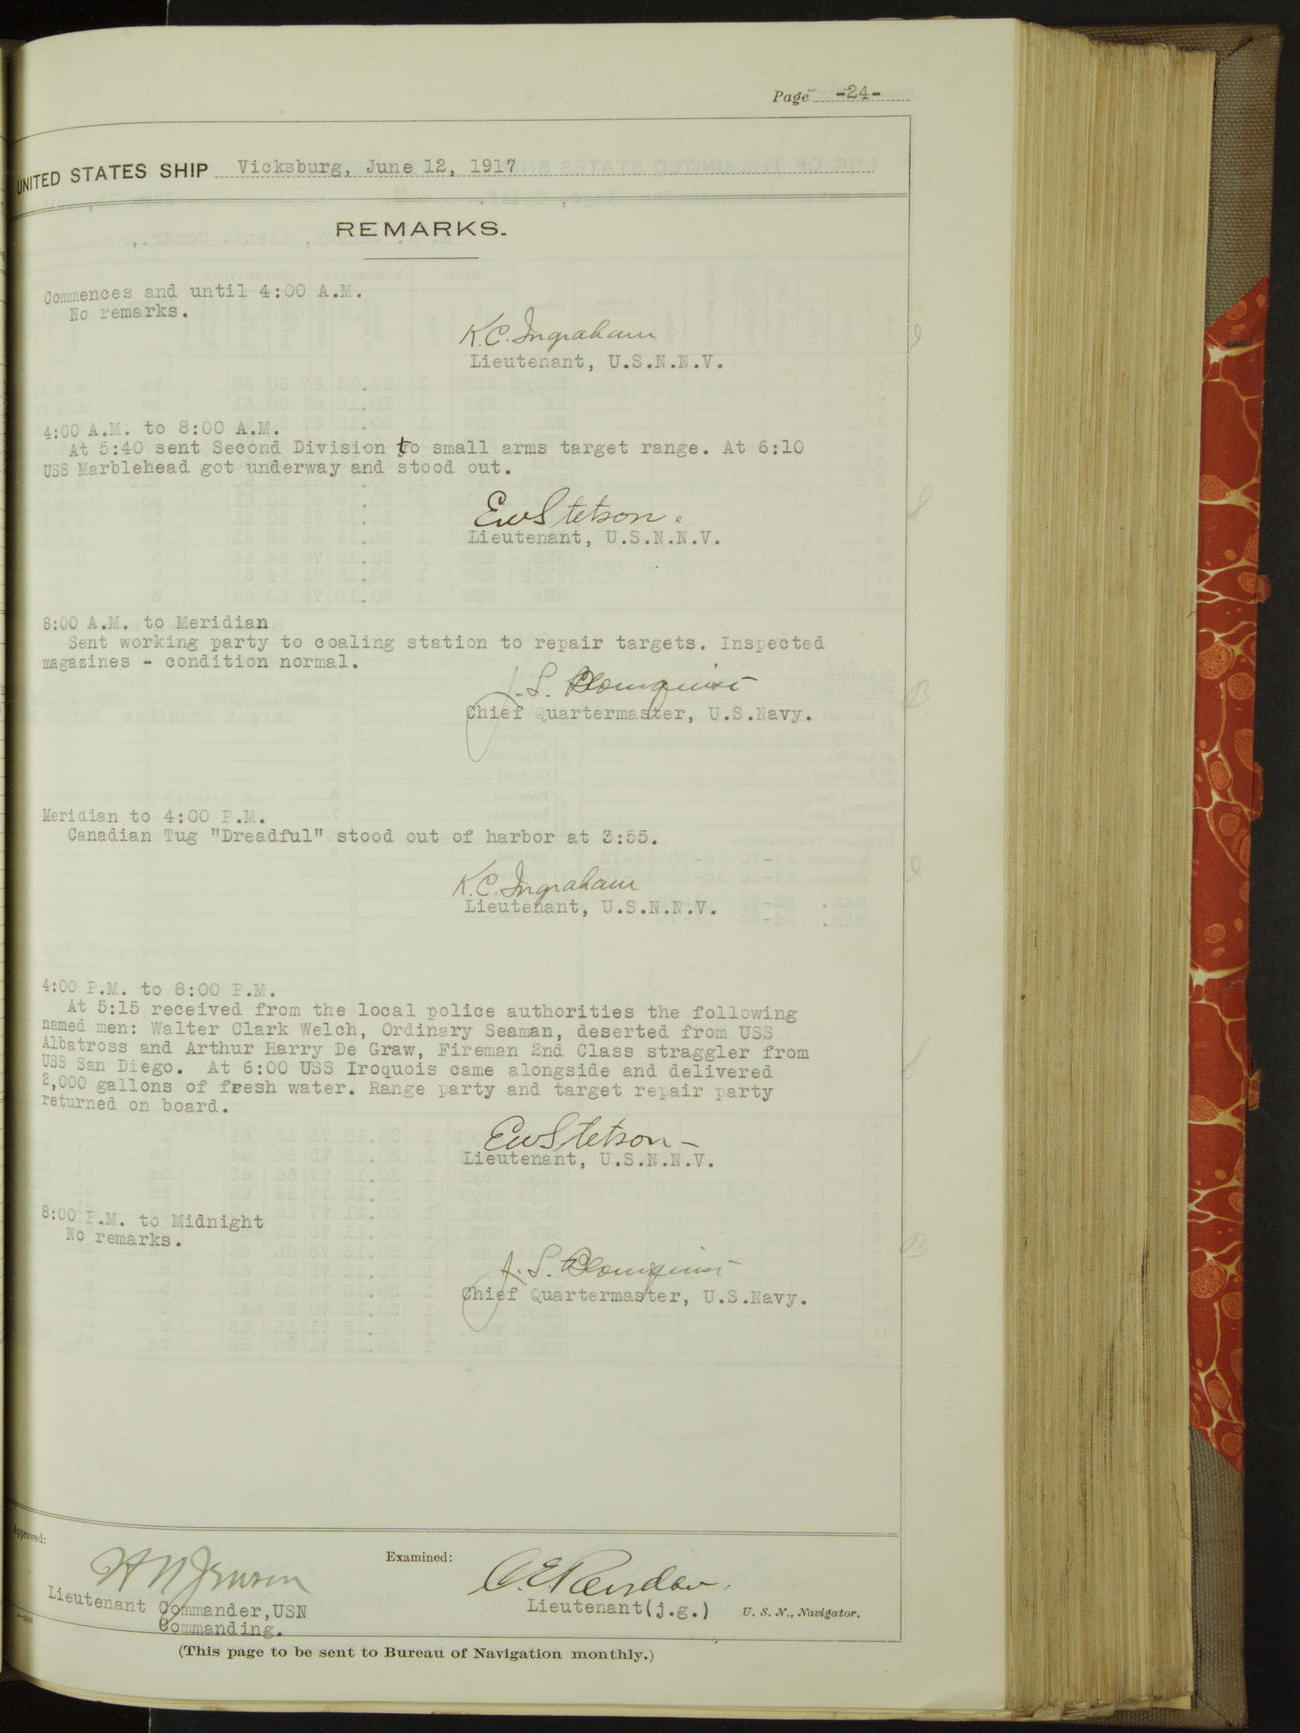 Page -24-
UNITED STATES SHIP Vicksburg, June 12, 1917
REMARKS.
Commences and until 4:00 A.M.
No remarks.
K.C. Ingraham
Lieutenant, U.S.N.N.V.
4:00 A.M. to 8:00 A.M.
At 5:40 sent Second Division to small arms target range. At 6:10
USS Marblehead got underway and stood out.
EW Stetson.
Lieutenant, U.S.N.N.V.
8:00 A.M. to Meridian
Sent working party to coaling station to repair targets. Inspected
magazines - condition normal.
J. S. Blomquist
Chief Quartermaster, U.S.Navy.
Meridian to 4:00 P.M.
Canadian Tug "Dreadful" stood out of harbor at 3:55.
K.C. Ingraham
Lieutenant, U.S.N.N.V.
4:00 P.M. to 8:00 P.M.
At 5:15 received from the local police authorities the following
named men: Walter Clark Welch, Ordinary Seaman, deserted from USS
Albatross and Arthur Harry De Graw, Fireman 2nd Class straggler from
USS San Diego. At 6:00 USS Iroquois came alongside and delivered
2,000 gallons of fresh water. Range party and target repair party
returned on board.
EW Stetson -
Lieutenant, U.S.N.N.V.
8:00 P.M. to Midnight
No remarks.
J. S. Blomquist
Chief Quartermaster, U.S.Navy.
Approved:
Lieutenant Commander, USN
Commanding.
Examined:
Lieutenant(j.g.) U. S. N., Navigator.
(This page to be sent to Bureau of Navigation monthly.)